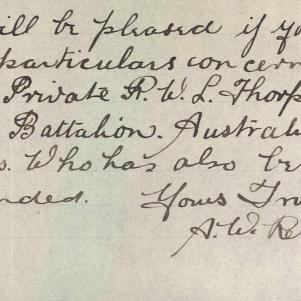 ill be pleased if yo
particulars concern
Private R. W. L. Thorp
Battalion. Austral
s. Who has also be
nded. Yours Tru
A. W. Re